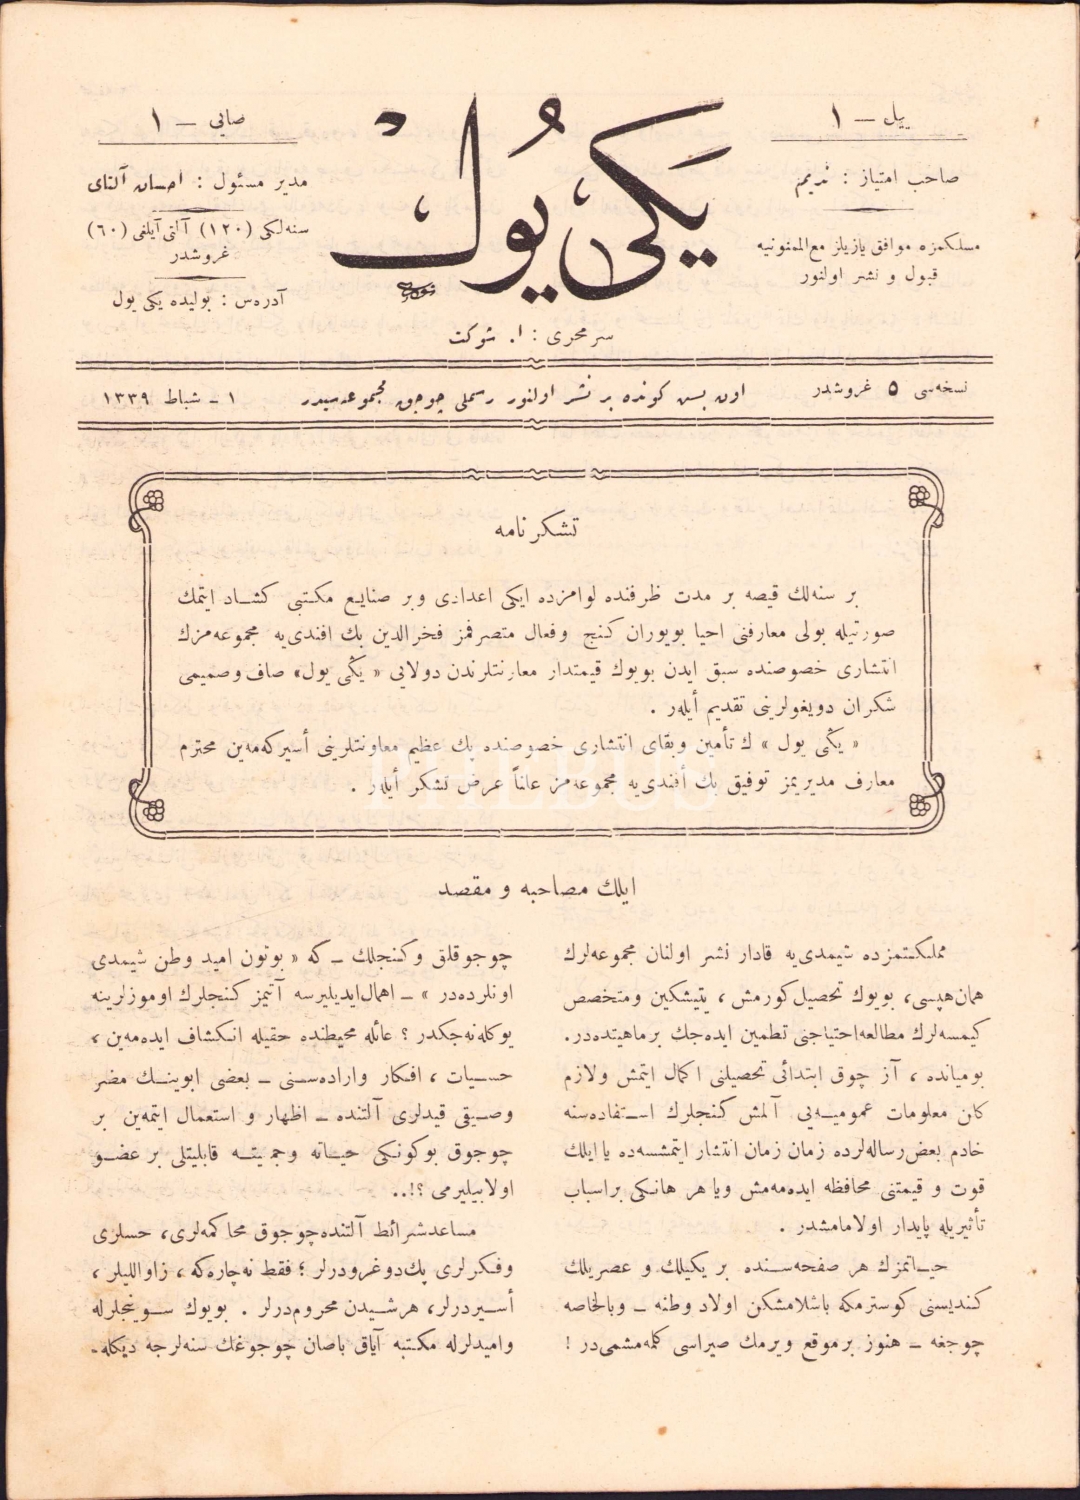 ییل – ١
صاحب امتیاز : ندیم
مسلکمزه موافق یازیلر مع الممنونیه
قبول و نشر اولنور
یڭی یول
سر محرری : ا. شوکت
صایی – ١
مدیر مسئول : احسان آلتای
سنه لکی (١٢٠) آلتی آیلغی (٦٠)
غروشدر
آدره س : بولیده یکی یول
نسخه سی ٥ غروشدر
اون بش کونده بر نشر اولنور رسملی چوجق مجموعه سیدر
١ - شباط ١٣٣٩
تشکر نامه
بر سنه لك قیصه بر مدت ظرفنده لوامزده ایکی اعدادی و بر صنایع مکتبی کشاد ایتمك
صورتیله بولی معارفنی احیا بویوران کنج و فعال متصرفمز فخرالدین بك افندی یه مجموعه مزك
انتشاری خصوصنده سبق ایدن بویوك قیمتدار معاونتلرندن دولایی « یڭی یول» صاف و صمیمی
شکران دویغولرینی تقدیم أیلەر .
« یڭی یول » ك تأمین و بقای انتشاری خصوصنده پك عظیم معاونتلرینی أسیرکه مه ین محترم
معارف مدیریمز توفیق بك أفندی یه مجموعه مز علناً عرض تشکر أیلەر .
ایلك مصاحبه و مقصد
مملکتمزده شیمدی یه قادار نشر اولنان مجموعه لرك
همان هپسی، بویوك تحصیل کورمش ، یتیشکین و متخصص
کیمسه لرك مطالعه احتیاجنی تطمین ایده جك بر ماهیتده در.
بومیانده ، آز چوق ابتدائی تحصیلنی اکمال ایتمش و لازم
کلن معلومات عمومیه یی آلمش کنجلرك استفاده سنه
خادم بعض رساله لرده زمان زمان انتشار ایتمشسه ده یا ایلك
قوت و قیمتنی محافظه ایده مه مش ویا هر هانکی بر اسباب
تأثیریله پایدار اولامامشدر .
حیاتمزك هر صفحه سنده بر یکیلك و عصریلك
کندیسنی کوسترمکه باشلامشکن اولاد وطنه – و بالخاصه
چوجغه – هنوز بر موقع ویرمك صیراسی کلمه مشمی در !
چوجوقلق و کنجلك – که « بوتون امید وطن شیمدی
اونلرده در » – اهمال ایدیلیرسه آتیمز کنجلرك اوموزلرینه
یوکله نه جکدر ؟ عائله محیطنده حقیله انکشاف ایده مه ین ،
حسیات ، افکار و اراده سنی – بعضی ابوینك مضر
وصیقی قیدلری آلتنده – اظهار و استعمال ایتمه ین بر
چوجوق بوکونکی حیاته و جمیته قابلیتلی بر عضو
اولابیلیرمی ؟!..
مساعد شرائط آلتنده چوجوق محاکمه لری، حسلری
و فکرلری پك دوغرودرلر ؛ فقط نه چاره که ، زاواللیلر ،
أسیردرلر، هر شیدن محرومدرلر . بویوك سوینجلرله
و امیدلرله مکتبه آیاق باصان چوجوغك سنه لرجه دیکله-